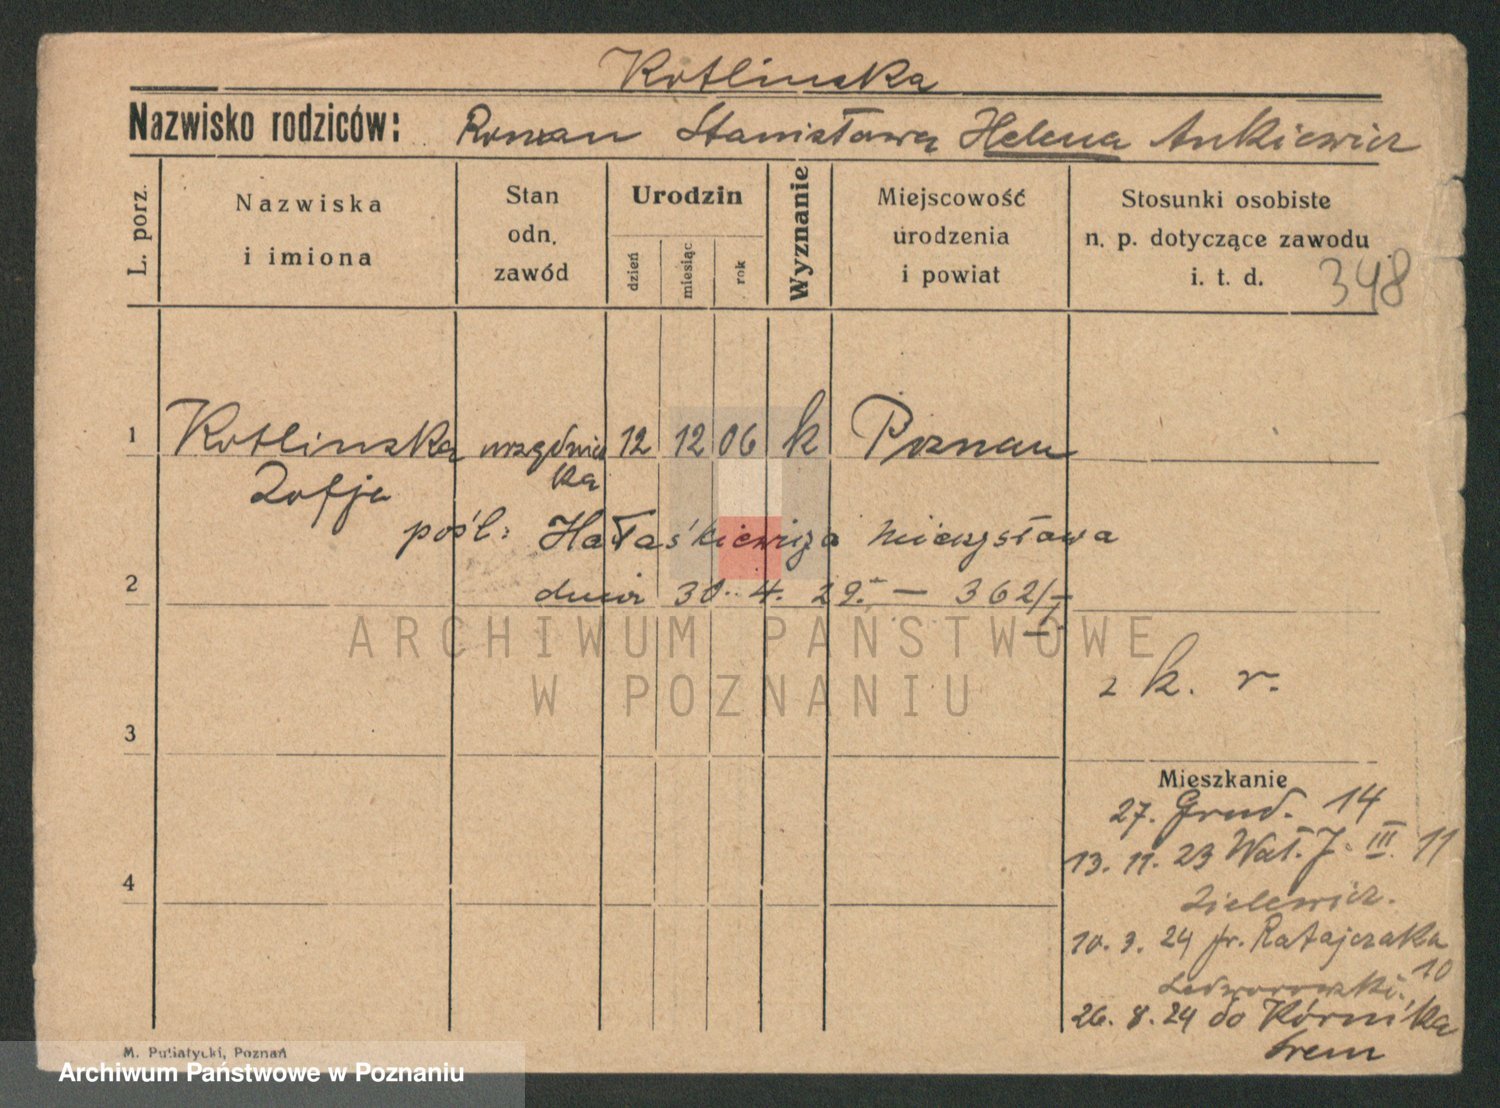 Kotlinska
Nazwisko rodziców: Roman Stanisława Helena Ankiewicz
L. porz.
Nazwiska i imiona
Stan odn. zawód
Urodzin
dzień
miesiąc
rok
Wyznanie
Miejscowość urodzenia i powiat
Stosunki osobiste n. p. dotyczące zawodu i. t. d.
348
1 Kotlinska urzędnicz 12 12 06 k Poznan
Zofja ka
pośl: Hałaśkiewicza Mieczysława
2 dnia 30. 4. 29. — 362/I
ARCHIWUM PAŃSTWOWE
W POZNANIU
z k. r.
3
Mieszkanie
27. Grud. 14
13. 11. 23 Wał. J. III. 11
4
Zielewicz.
10. 3. 24 fr. Ratajczaka 10
Ledworowski.
26. 8. 24 do Kórnika
Srem
M. Putiatycki, Poznań
Archiwum Państwowe w Poznaniu